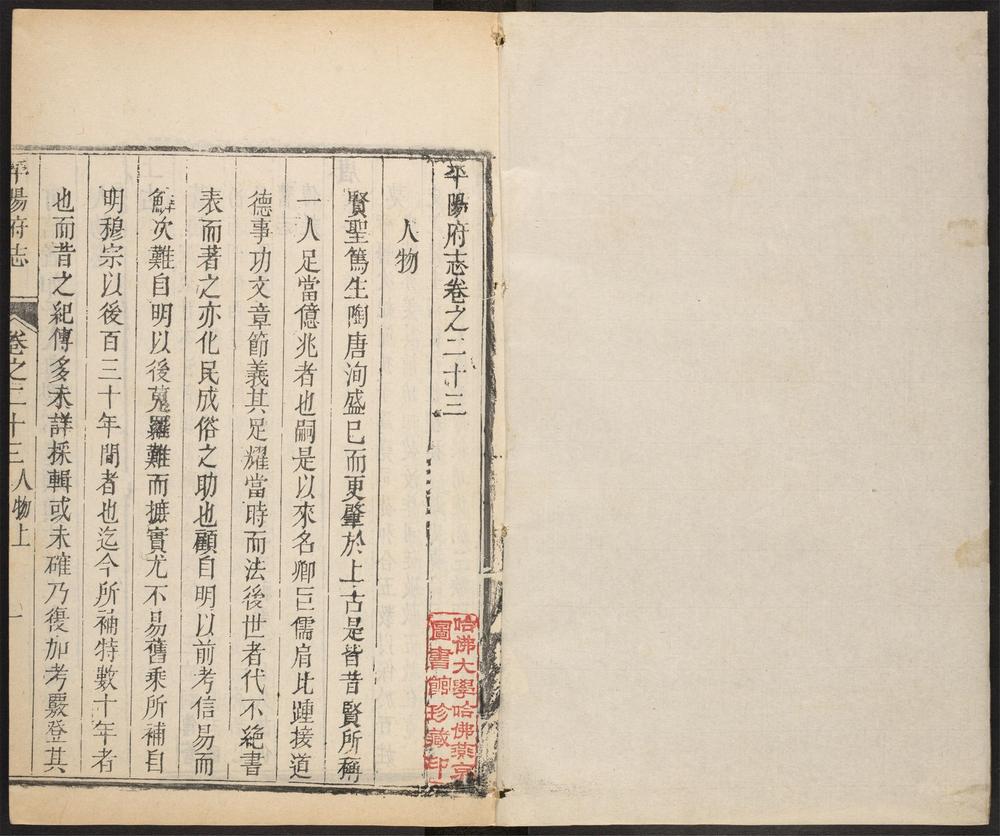 平陽府志卷之二十三
人物
賢聖篤生陶唐洵盛已而更肇於上古是皆昔賢所稱
一人足當億兆者也嗣是以來名卿巨儒肩比踵接道
德事功文章節義其足耀當時而法後世者代不絶書
表而著之亦化民成俗之助也顧自明以前考信易而
觧次難自明以後蒐羅難而摭實尤不易舊乘所補自
明穆宗以後百三十年間者也迄今所補特數十年者
也而昔之紀傳多未詳採輯或未確乃復加考覈登其
平陽府志
卷之二十三人物上
一
哈佛大學哈佛燕京
圖書館珍藏印